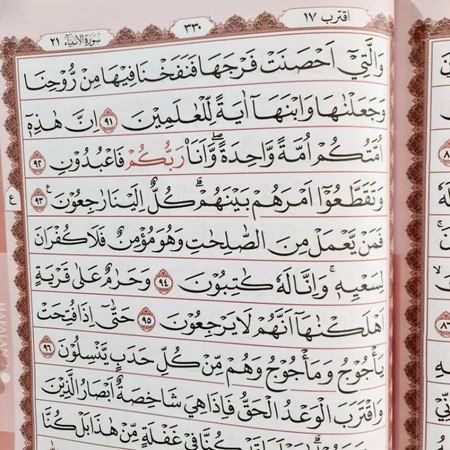 اقترب ١٧
٣٣٠
سورة الانبياء ٢١
وَالَّتِيْٓ اَحْصَنَتْ فَرْجَهَا فَنَفَخْنَا فِيْهَا مِنْ رُّوْحِنَا
وَجَعَلْنٰهَا وَابْنَهَآ اٰيَةً لِّلْعٰلَمِيْنَ ٩١ اِنَّ هٰذِهٖٓ
اُمَّتُكُمْ اُمَّةً وَّاحِدَةًۖ وَّاَنَا۠ رَبُّكُمْ فَاعْبُدُوْنِ ٩٢
وَتَقَطَّعُوْٓا اَمْرَهُمْ بَيْنَهُمْۗ كُلٌّ اِلَيْنَا رٰجِعُوْنَ ࣖ ٩٣
فَمَنْ يَّعْمَلْ مِنَ الصّٰلِحٰتِ وَهُوَ مُؤْمِنٌ فَلَا كُفْرَانَ
لِسَعْيِهٖۚ وَاِنَّا لَهٗ كٰتِبُوْنَ ٩٤ وَحَرٰمٌ عَلٰى قَرْيَةٍ
اَهْلَكْنٰهَآ اَنَّهُمْ لَا يَرْجِعُوْنَ ٩٥ حَتّٰىٓ اِذَا فُتِحَتْ
يَأْجُوْجُ وَمَأْجُوْجُ وَهُمْ مِّنْ كُلِّ حَدَبٍ يَّنْسِلُوْنَ ٩٦
وَاقْتَرَبَ الْوَعْدُ الْحَقُّ فَاِذَا هِيَ شَاخِصَةٌ اَبْصَارُ الَّذِيْنَ
كُنَّا فِيْ غَفْلَةٍ مِّنْ هٰذَا بَلْ كُنَّا